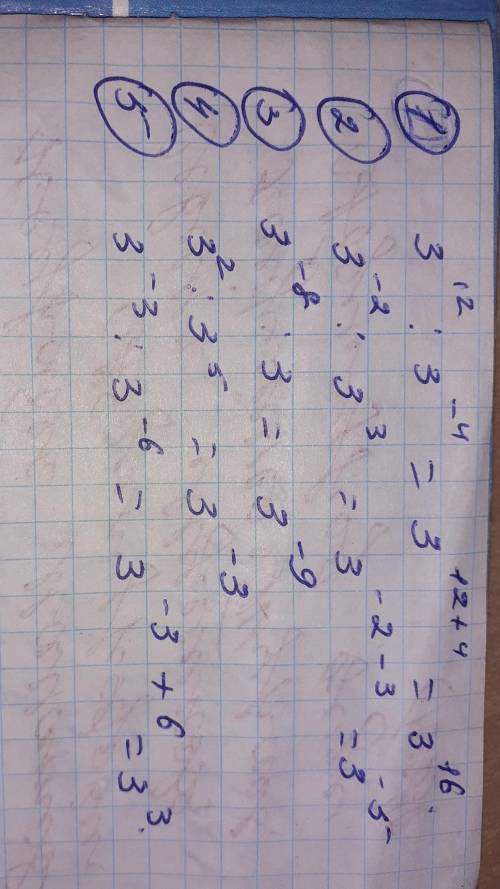 ① 3¹² : 3⁻⁴ = 3¹²⁺⁴ = 3¹⁶.
② 3⁻² : 3³ = 3⁻²⁻³ = 3⁻⁵
③ 3⁻⁸ : 3 = 3⁻⁹
④ 3² : 3⁵ = 3⁻³
⑤ 3⁻³ : 3⁻⁶ = 3⁻³⁺⁶ = 3³.